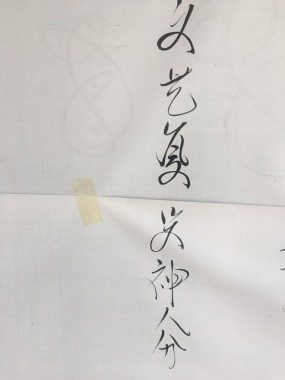 文艺复兴神人分